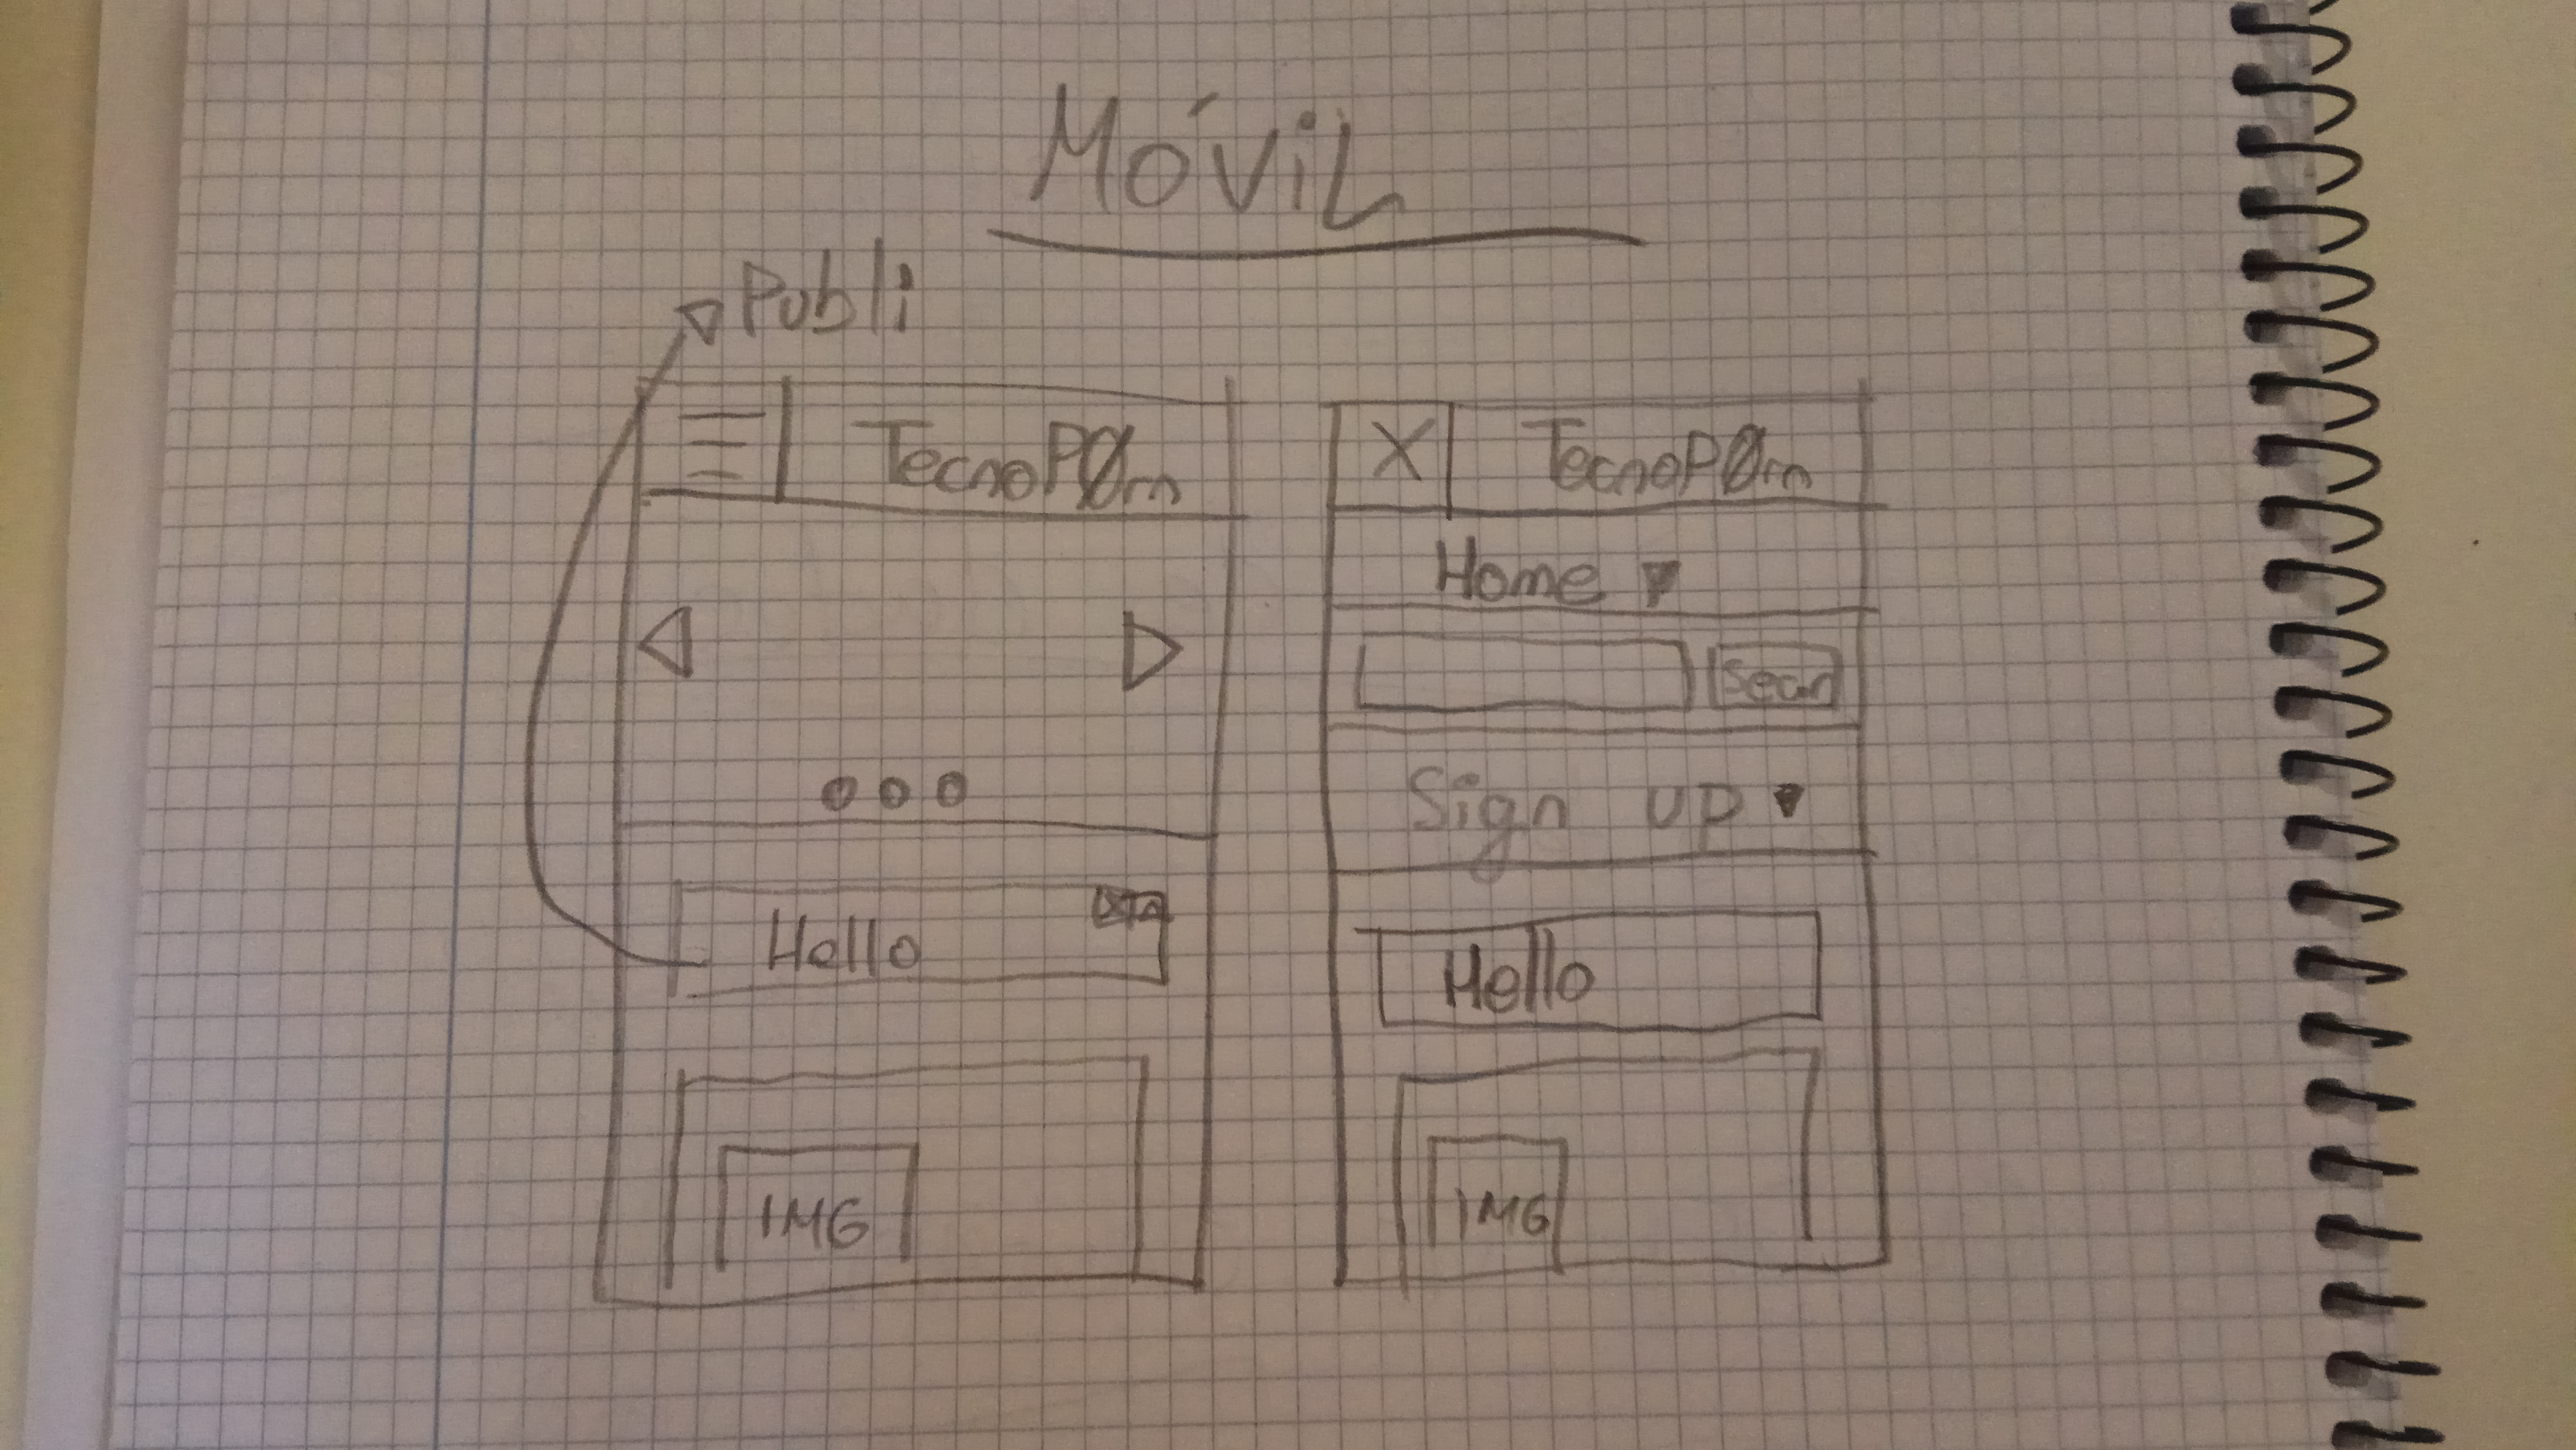 Móvil
Publi
TecnoPØrn
Hello
IMG
X TecnoPØrn
Home
Sear
Sign up
Hello
IMG